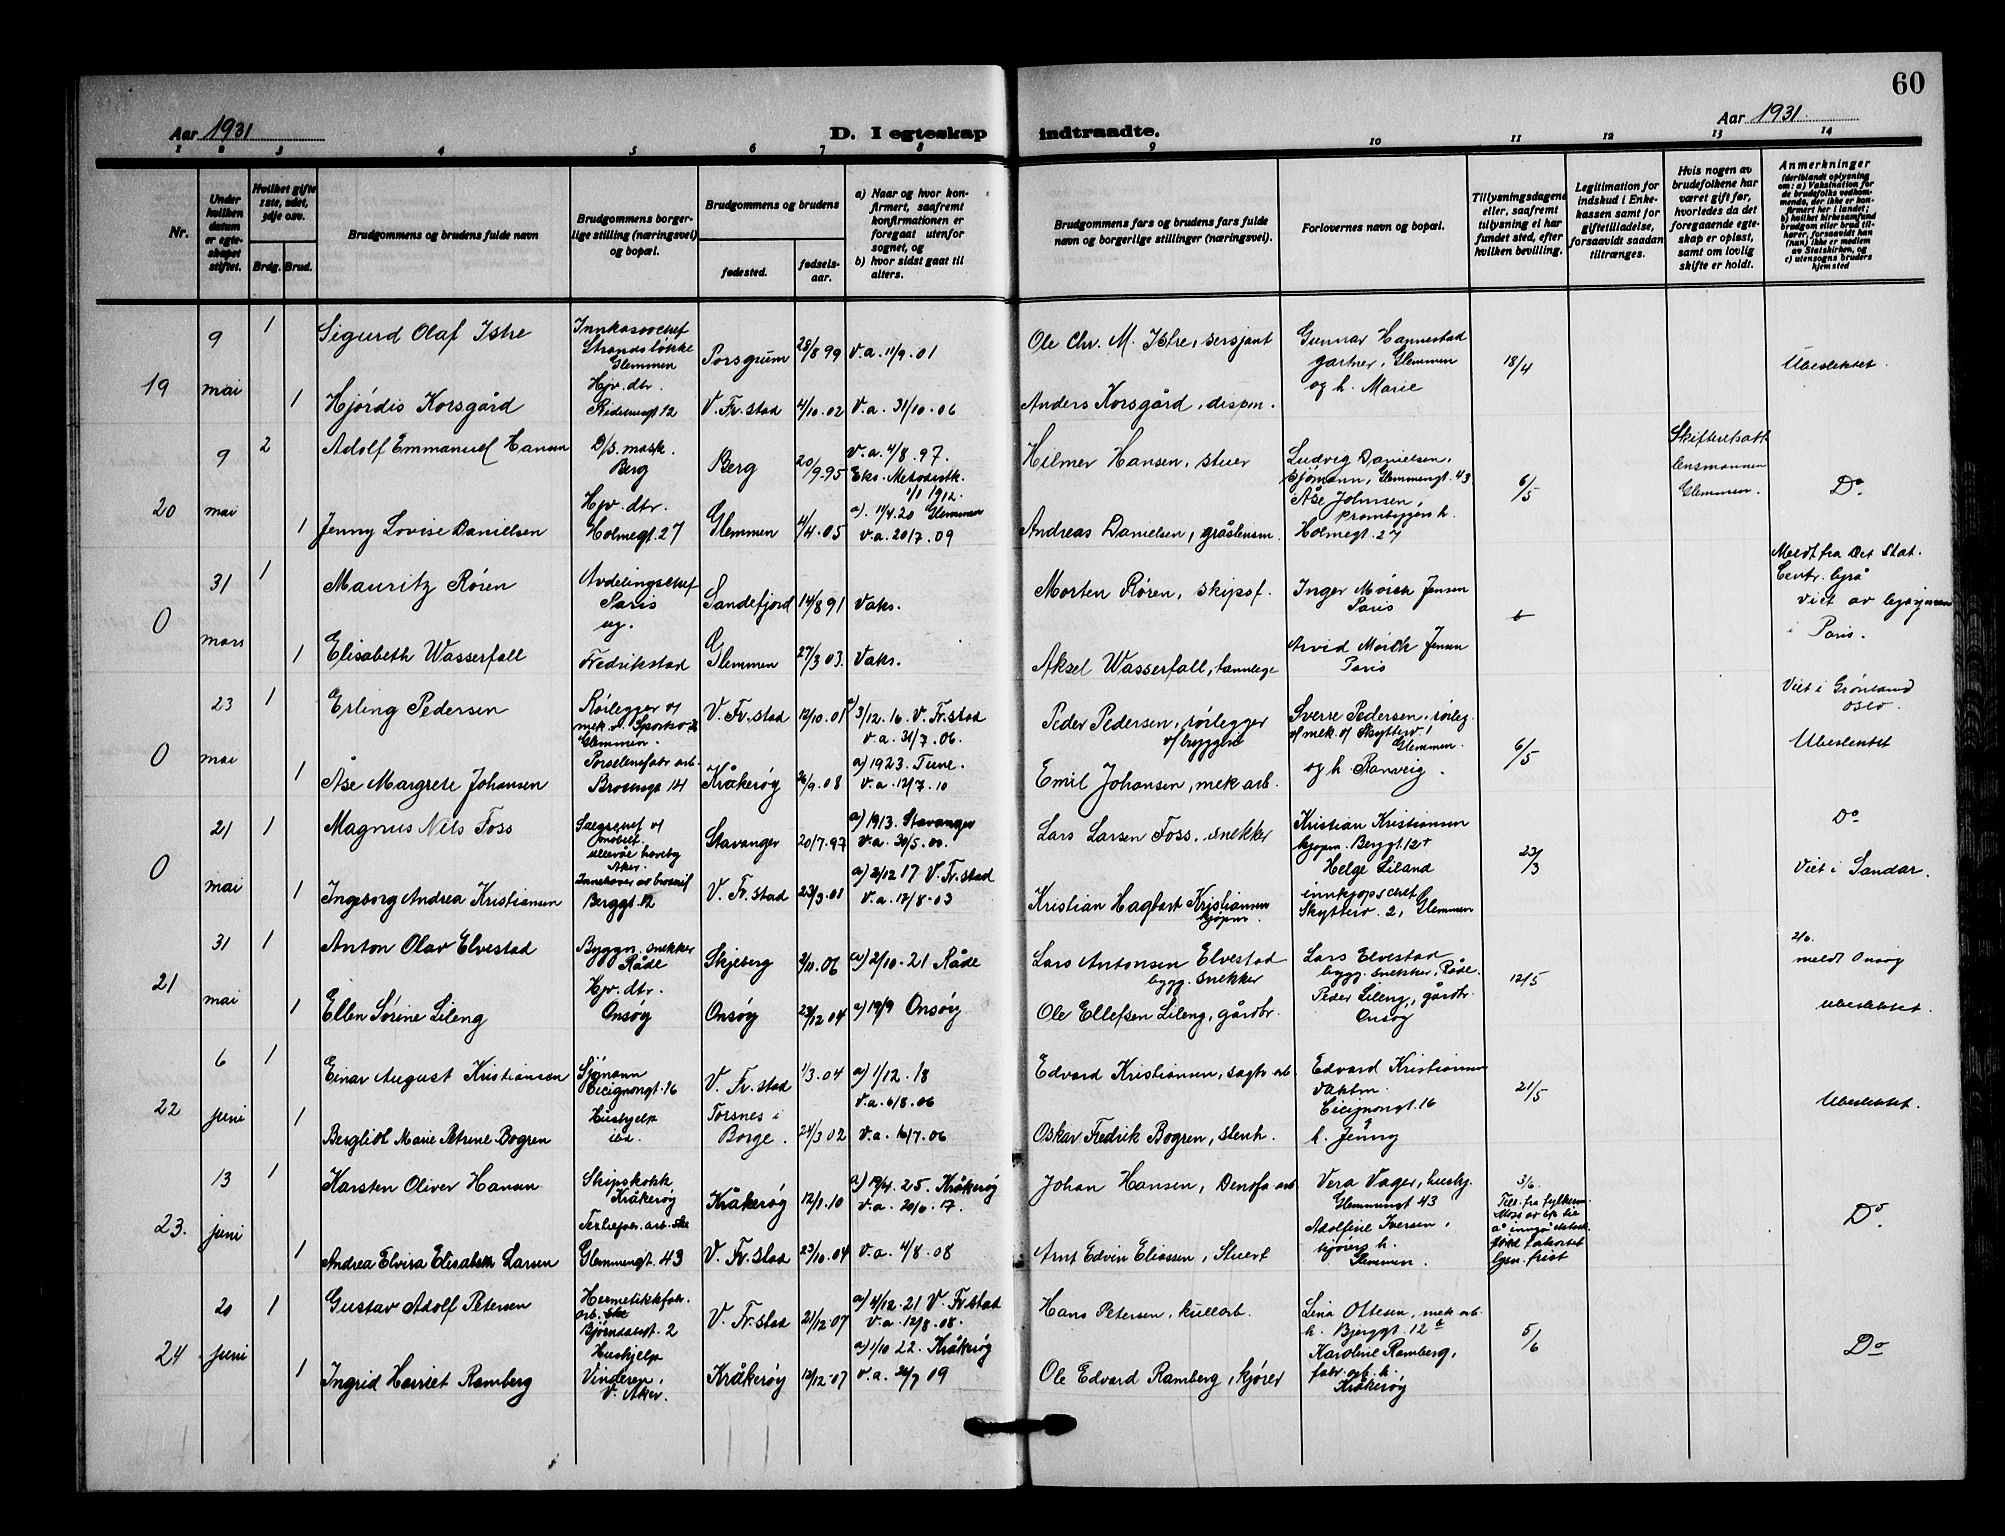 60
Aar 1931
D. I egteskap indtraadte.
Aar 1931
1 2 3 4 5 6 7 8 9 10 11 12 13 14
Nr.
Under hvilken datum er egteskapet stiftet.
Hvilket gifte 1ste, 2det, 3dje osv.
Brdg. Brud.
Brudgommens og brudens fulde navn
Brudgommens borgerlige stilling (næringsvei) og bopæl.
Brudgommens og brudens
fødested.
fødselsaar.
a) Naar og hvor konfirmert, saafremt konfirmationen er foregaat utenfor sognet, og
b) hvor sidst gaat til alters.
Brudgommens fars og brudens fars fulde navn og borgerlige stillinger (næringsvei).
Forlovernes navn og bopæl.
Tillysningsdagene eller, saafremt tillysning ei har fundet sted, efter hvilken bevilling.
Legitimation for indskud i Enkekassen samt for giftetilladelse, forsaavidt saadan tiltrænges.
Hvis nogen av brudefolkene har været gift før, hvorledes da det foregaaende egteskap er opløst, samt om lovlig skifte er holdt.
Anmerkninger
(deriblandt oplysning om: a) Vaksination for de brudefolks vedkommende, der ikke er konfirmert her i landet; b) hvilket kirkesamfund brudgom eller brud tilhører, forsaavidt han (hun) ikke er medlem av Statskirken, og c) utensogns bruders hjemsted
19
9 mai
1
Sigurd Olaf Istre
Innkassochef
Strandsløkke
Glemmen
Porsgrunn
28/8 99
V.a. 11/9. 01
Ole Chr. M. Istre, sersjant
Gunnar Hannestad
gartner, Glemmen
og h. Marie
18/4
Ubeslektet.
1
Hjørdis Korsgård
Hjv. dtr.
V. Fr.stad
4/10. 02
V.a. 31/10. 06
Anders Korsgård, dispon.
20
9 mai
2
Adolf Emmanuel Hansen
D/S. mask.
Berg
Berg
20/9. 95
V.a. 4/8. 97.
Eks. Metodistk.
1/1 1912.
Hilmer Hansen, stuer
Ludvig Danielsen,
sjømann, Glemmengt. 43
Åse Johnsen,
Holmegt. 27
6/5
Skifteretsatt
lensmannen
Glemmen.
Do
1
Jenny Lovise Danielsen
Hjv. dtr.
Holmegt. 27
Glemmen
4/4. 05
a) 11/4. 20 Glemmen
V.a. 20/7. 09
Andreas Danielsen, gråstensm.
0
31 mars
1
Mauritz Røren
Avdelingschef
Paris
og.
Sandefjord
14/8 91
Vaks.
Morten Røren, skipsf.
Inger Mørch Jensen
Paris
Meldt fra Det Stat.
Centr. byrå
Viet av byfogden
i Paris.
1
Elisabeth Wasserfall
Fredrikstad
Glemmen
27/3 03.
Vaks.
Aksel Wasserfall, tannlege
Arvid Mørch Jensen
Paris
0
23 mai
1
Erling Pedersen
Rørlegger og
Glemmen.
V. Fr.stad
12/10. 01
a) 3/12. 16. V. Fr.stad
V.a. 31/7. 06.
Peder Pedersen, rørlegger
Sverre Pedersen, rørleg.
Glemmen.
og h. Ranveig.
6/5
Viet i Grønland
Oslo.
Ubeslektet
1
Åse Margrete Johansen
Porselensfabr. arb.
Kråkerøy
26/9. 08
a) 1923. Tune.
V.a. 12/7. 10
Emil Johansen, mek arb.
0
21 mai
1
Magnus Nils Foss
Aker
Stavanger
20/7. 97
a) 1913. Stavanger
V.a. 30/5. 00.
Lars Larsen Foss, snekker
Kristian Kristiansen
kjøpm. Berggt. 12
Helge Liland
innkjøpschef
Skytterv. 2, Glemmen
23/3
Do
Viet i Sandar.
1
Ingeborg Andrea Kristiansen
Berggt. 12
V. Fr.stad
23/3. 01
a) 2/12 17 V. Fr.stad
V.a. 12/8. 03
Kristian Hagbart Kristiansen
kjøpm.
21
31 mai
1
Anton Olav Elvestad
Byggn. snekker
Råde
Skjeberg
2/11. 06
a) 2/10. 21 Råde
Lars Antonsen Elvestad
bygg. snekker
Lars Elvestad
bygg. snekker, Råde.
Peder Lileng, gårdbr.
Onsøy
12/5
2/6.
meldt Onsøy
Ubeslektet.
1
Ellen Sørine Lileng
Hjv. dtr.
Onsøy
Onsøy
23/12 04
a) 19/9 Onsøy
Ole Ellefsen Lileng, gårdbr.
22
6 juni
1
Einar August Kristiansen
Sjømann
Cicignongt. 16
V. Fr.stad
1/3. 04
a) 1/12. 18
V.a. 6/8. 06
Edvard Kristiansen, sagbr. arb
Edvard Kristiansen
vaktm.
Cicignongt. 16
h. Jenny
21/5
Ubeslektet.
1
Bergliot Marie Petrine Bogren
Hushjelp
ibd.
Torsnes i
Borge.
24/3 02
V.a. 16/7. 06
Oskar Fredrik Bogren, stenh.
23.
13 juni
1
Karsten Oliver Hansen
Skipskokk
Kråkerøy
Kråkerøy
12/1. 10
a) 19/4. 25. Kråkerøy
V.a. 20/6. 17.
Johan Hansen, Denofa arb.
Vera Vager, hushj.
Glemmengt 43
Adolfine Iversen,
kjørers h.
Glemmen.
3/6.
Till. fra fylkesm.
Do.
1
Andrea Elvira Elisabeth Larsen
Glemmengt. 43
V. Fr.stad
23/10. 04
V.a. 4/8. 08
Arnt Edvin Eliassen, Stuert
24
20 juni
1
Gustav Adolf Petersen
Hermetikkfabr.
arb.
Bjørndalsgt. 2
V. Fr.stad
21/12. 07
a) 4/12. 21 V. Fr.stad
V.a. 12/8. 08.
Hans Petersen, kullarb.
Lina Ottesen, mek arb.
h. Bjerggt. 12 b
Karoline Ramberg,
fabr. arb. h.
Kråkerøy
5/6
Do
1
Ingrid Harriet Ramberg
Hushjelp
Vinderen,
V. Aker.
Kråkerøy
12/12. 07
a) 1/10 22. Kråkerøy
V.a. 26/7 09
Ole Edvard Ramberg, kjører